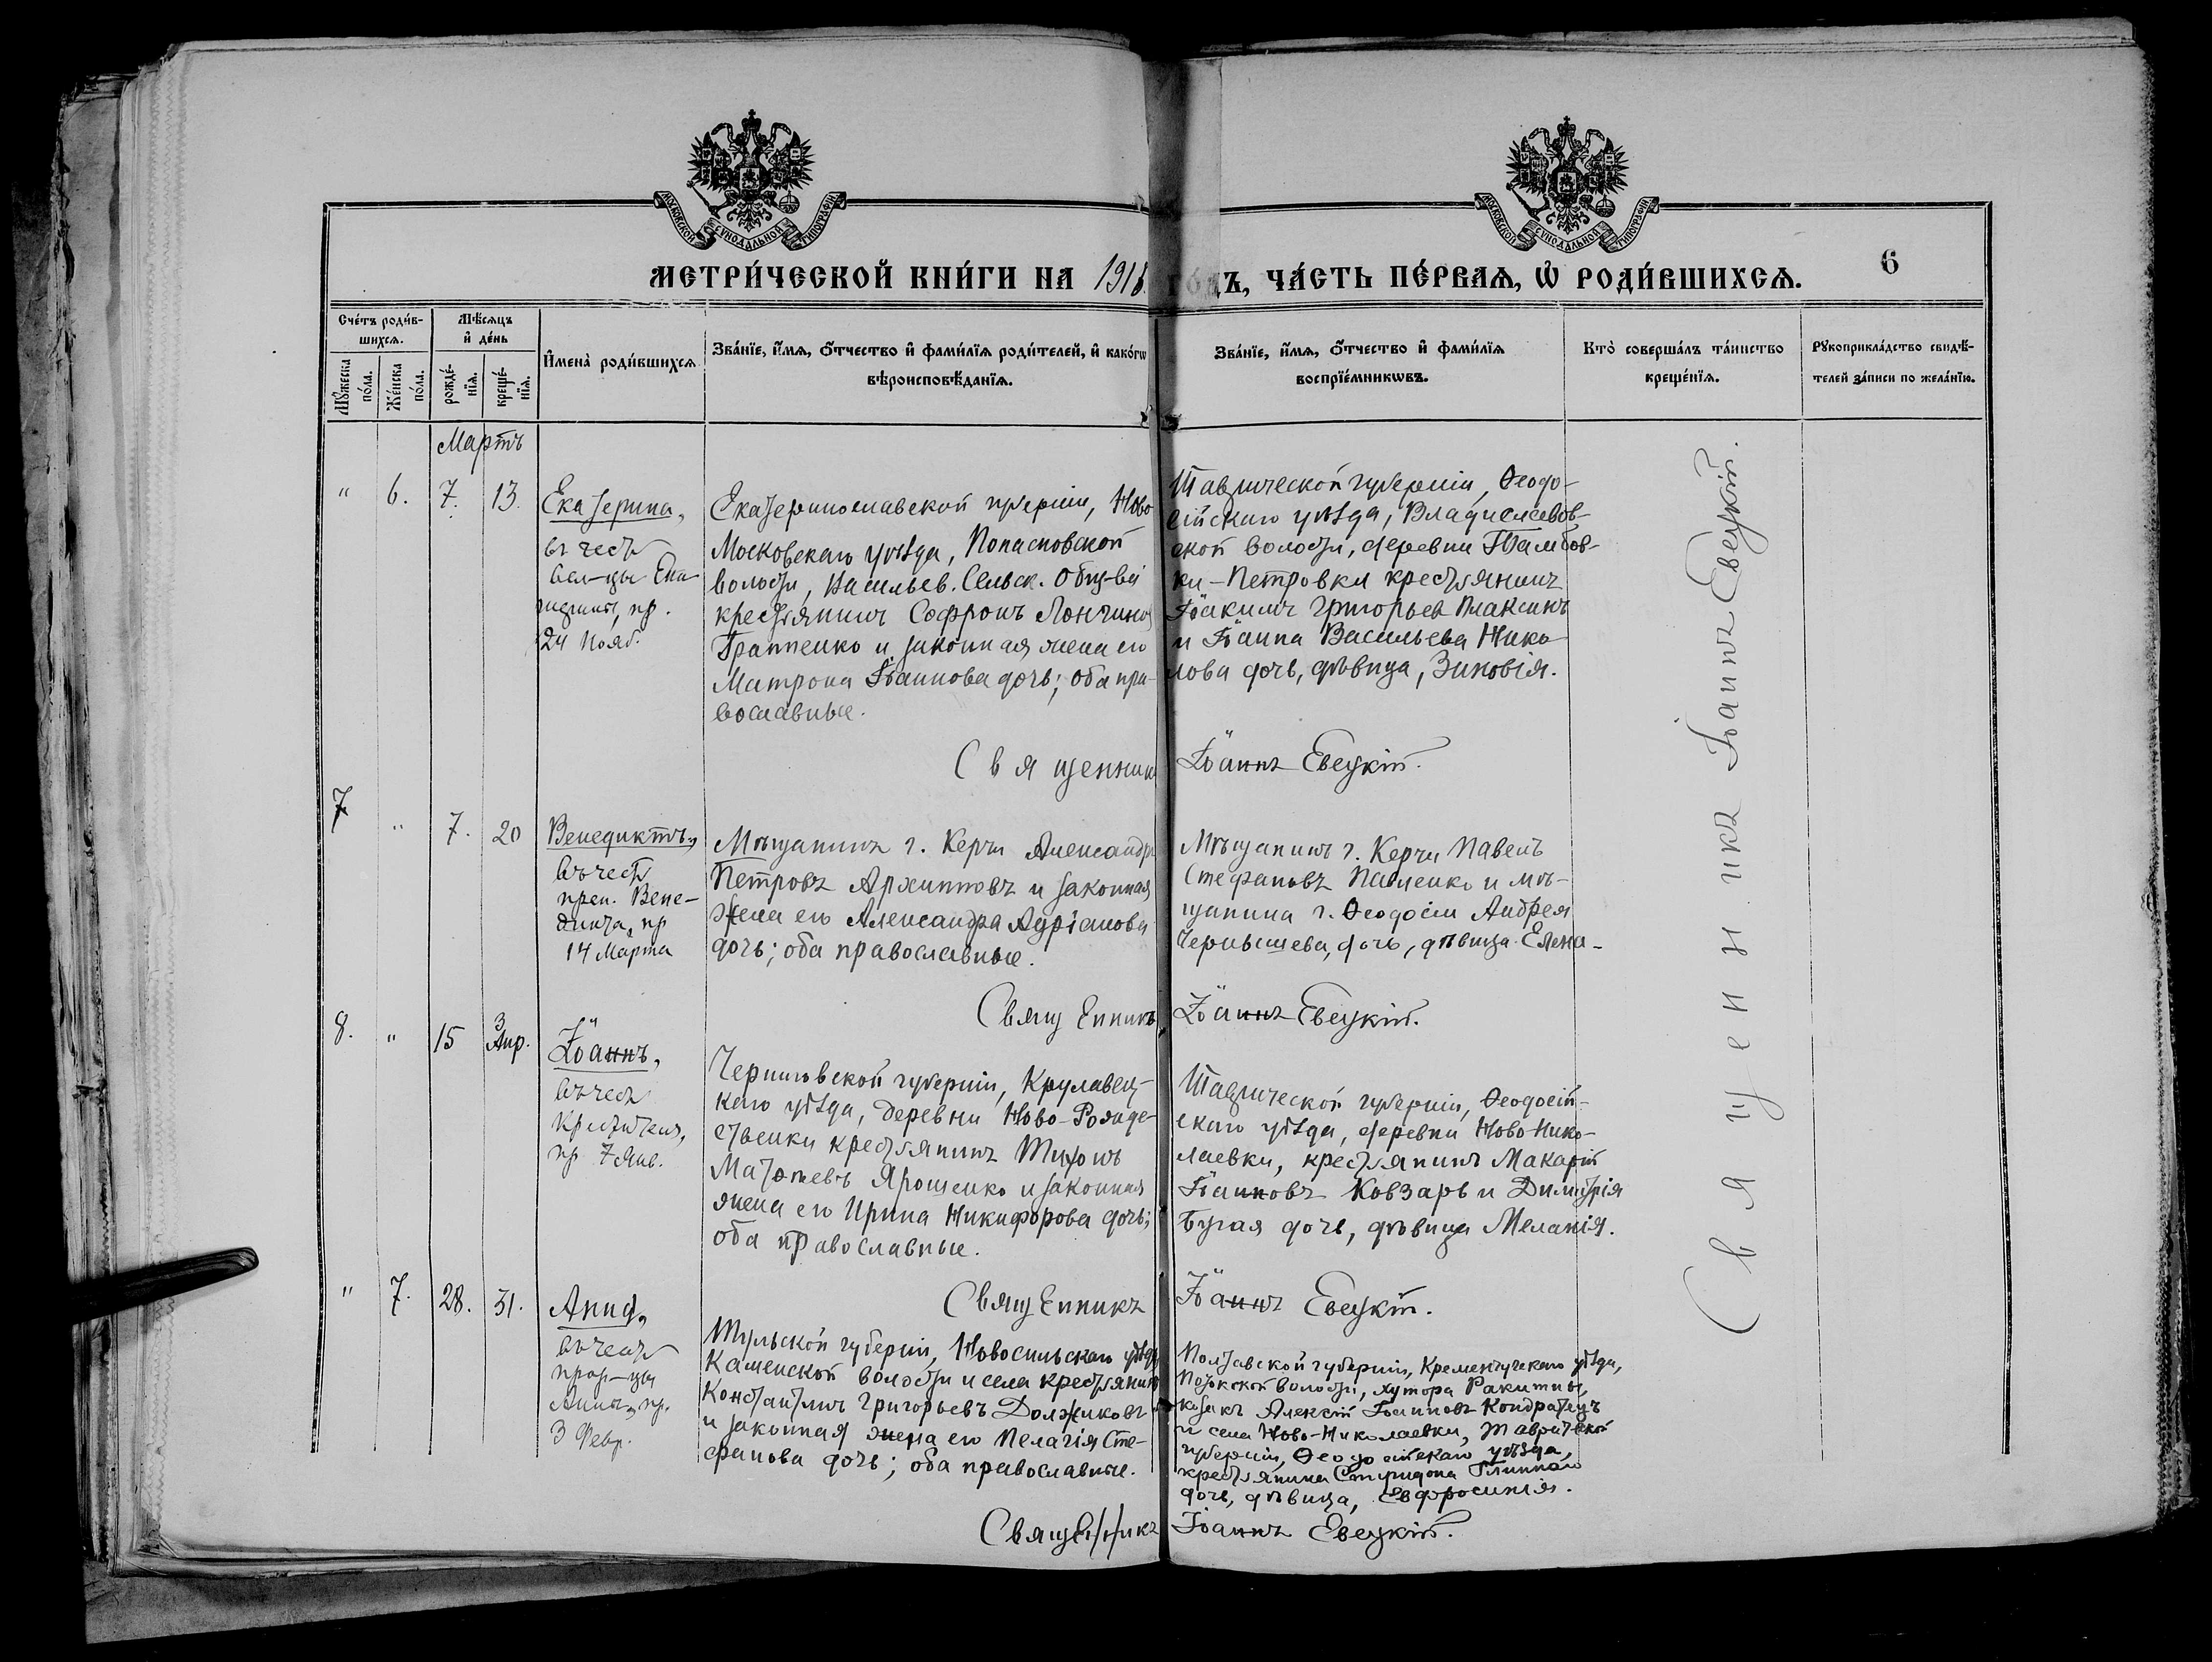 МОСКОВСКОЙ СѴНОДАЛЬНОЙ ТИПОГРАФІИ
МОСКОВСКОЙ СѴНОДАЛЬНОЙ ТИПОГРАФІИ
МЕТРИ́ЧЕСКОЙ КНИ́ГИ НА 1916 го́дъ, ЧА́СТЬ ПЕ́РВАѦ, Ѡ҆ РОДИ́ВШИХСѦ.
6
Сче́тъ роди́в-
шихсѧ.
Мꙋ́жеска по́ла.
Же́нска по́ла.
Мѣ́сѧцъ
и҆ де́нь
рожде́-
нїѧ.
креще́-
нїѧ.
И҆мена̀ роди́вшихсѧ
Зва́нїе, и҆́мѧ, ѻ҆́тчество и҆ фами́лїѧ роди́телей, и҆ како́гѡ
вѣроисповѣ́данїѧ.
Зва́нїе, и҆́мѧ, ѻ҆́тчество и҆ фами́лїѧ
воспрїе́мникѡвъ.
Кто̀ соверша́лъ та́инство
креще́нїѧ.
Рꙋкоприкла́дство свидѣ́-
телей за́писи по жела́нїю.
Мартъ
" 6. 7. 13.
Екатерина,
въ честь
вел-цы Ека-
терины, пр.
24 Нояб.
Екатеринославской губерніи, Ново
Московскаго уѣзда, Попасновской
волости, Васильев. Сельск. Общ-ва
крестьянинъ Софронъ Лонгиновъ
Граппенко и законная жена его
Матрона Іоаннова дочь; оба пра-
вославные.
Таврической губерніи, Ѳеодо-
сійскаго уѣзда, Владиславов-
ской волости, деревни Тамбов-
ки-Петровки крестьянинъ
Іоакимъ Григорьев Плаксинъ
и Іоанна Васильева Нико-
лова дочь, дѣвица, Зиновія.
Священникъ Іоаннъ Евецкій.
7 " 7. 20
Венедиктъ,
въ честь
преп. Вене-
дикта, пр
14 Марта
Мѣщанинъ г. Керчи Александръ
Петровъ Архиповъ и законная
жена его Александра Адріанова
дочь; оба православные.
Мѣщанинъ г. Керчи Павелъ
Стефановъ Павленко и мѣ-
щанина г. Ѳеодосіи Андрея
Чернышева, дочь, дѣвица Елена
Священникъ Іоаннъ Евецкій.
8. " 15 3 Апр.
Іоаннъ,
въ честь
Крестителя,
пр 7 Янв.
Черниговской губерніи, Кролевец-
каго уѣзда, деревни Ново-Рожде-
ственки крестьянинъ Тихонъ
Матѳеевъ Ярошенко и законная
жена его Ирина Никифорова дочь;
оба православные.
Таврической губерніи, Ѳеодосій-
скаго уѣзда, деревни Ново-Нико-
лаевки, крестьянинъ Макарій
Іоанновъ Ковзарь и Димитрія
Бугая дочь, дѣвица Меланія.
Священникъ Іоаннъ Евецкій.
" 7. 28. 31.
Анна,
въ честь
прор-цы
Анны, пр.
3 Февр.
Тульской губерніи, Новосильскаго уѣзда,
Каменской волости и села крестьянинъ
Константинъ Григорьевъ Должиковъ
и законная жена его Пелагія Сте-
фанова дочь; оба православные.
Полтавской губерніи, Кременчугскаго уѣзда,
волости, хутора Ракитны,
козакъ Алексій Іоанновъ Кондратецъ
и села Ново-Николаевки, Таврической
губерніи, Ѳеодосійскаго уѣзда,
крестьянина Спиридона
дочь, дѣвица, Евфросинія.
Священникъ Іоаннъ Евецкій.
Священникъ Іоаннъ Евецкій.